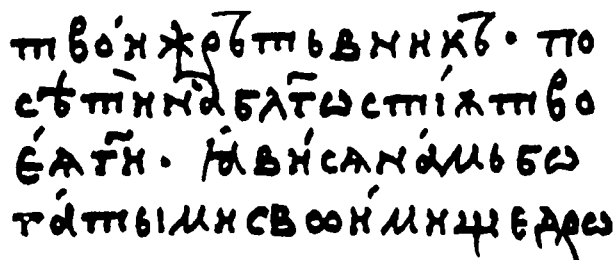 тво́и жрътьвникъ · по
сѣти́ на̑ блг҃ѡстїѧ тво
е́ѧ г҃и · ꙗ́ви́сѧ на́мь бѡ
га́тьıми своои́ми щедрѡ